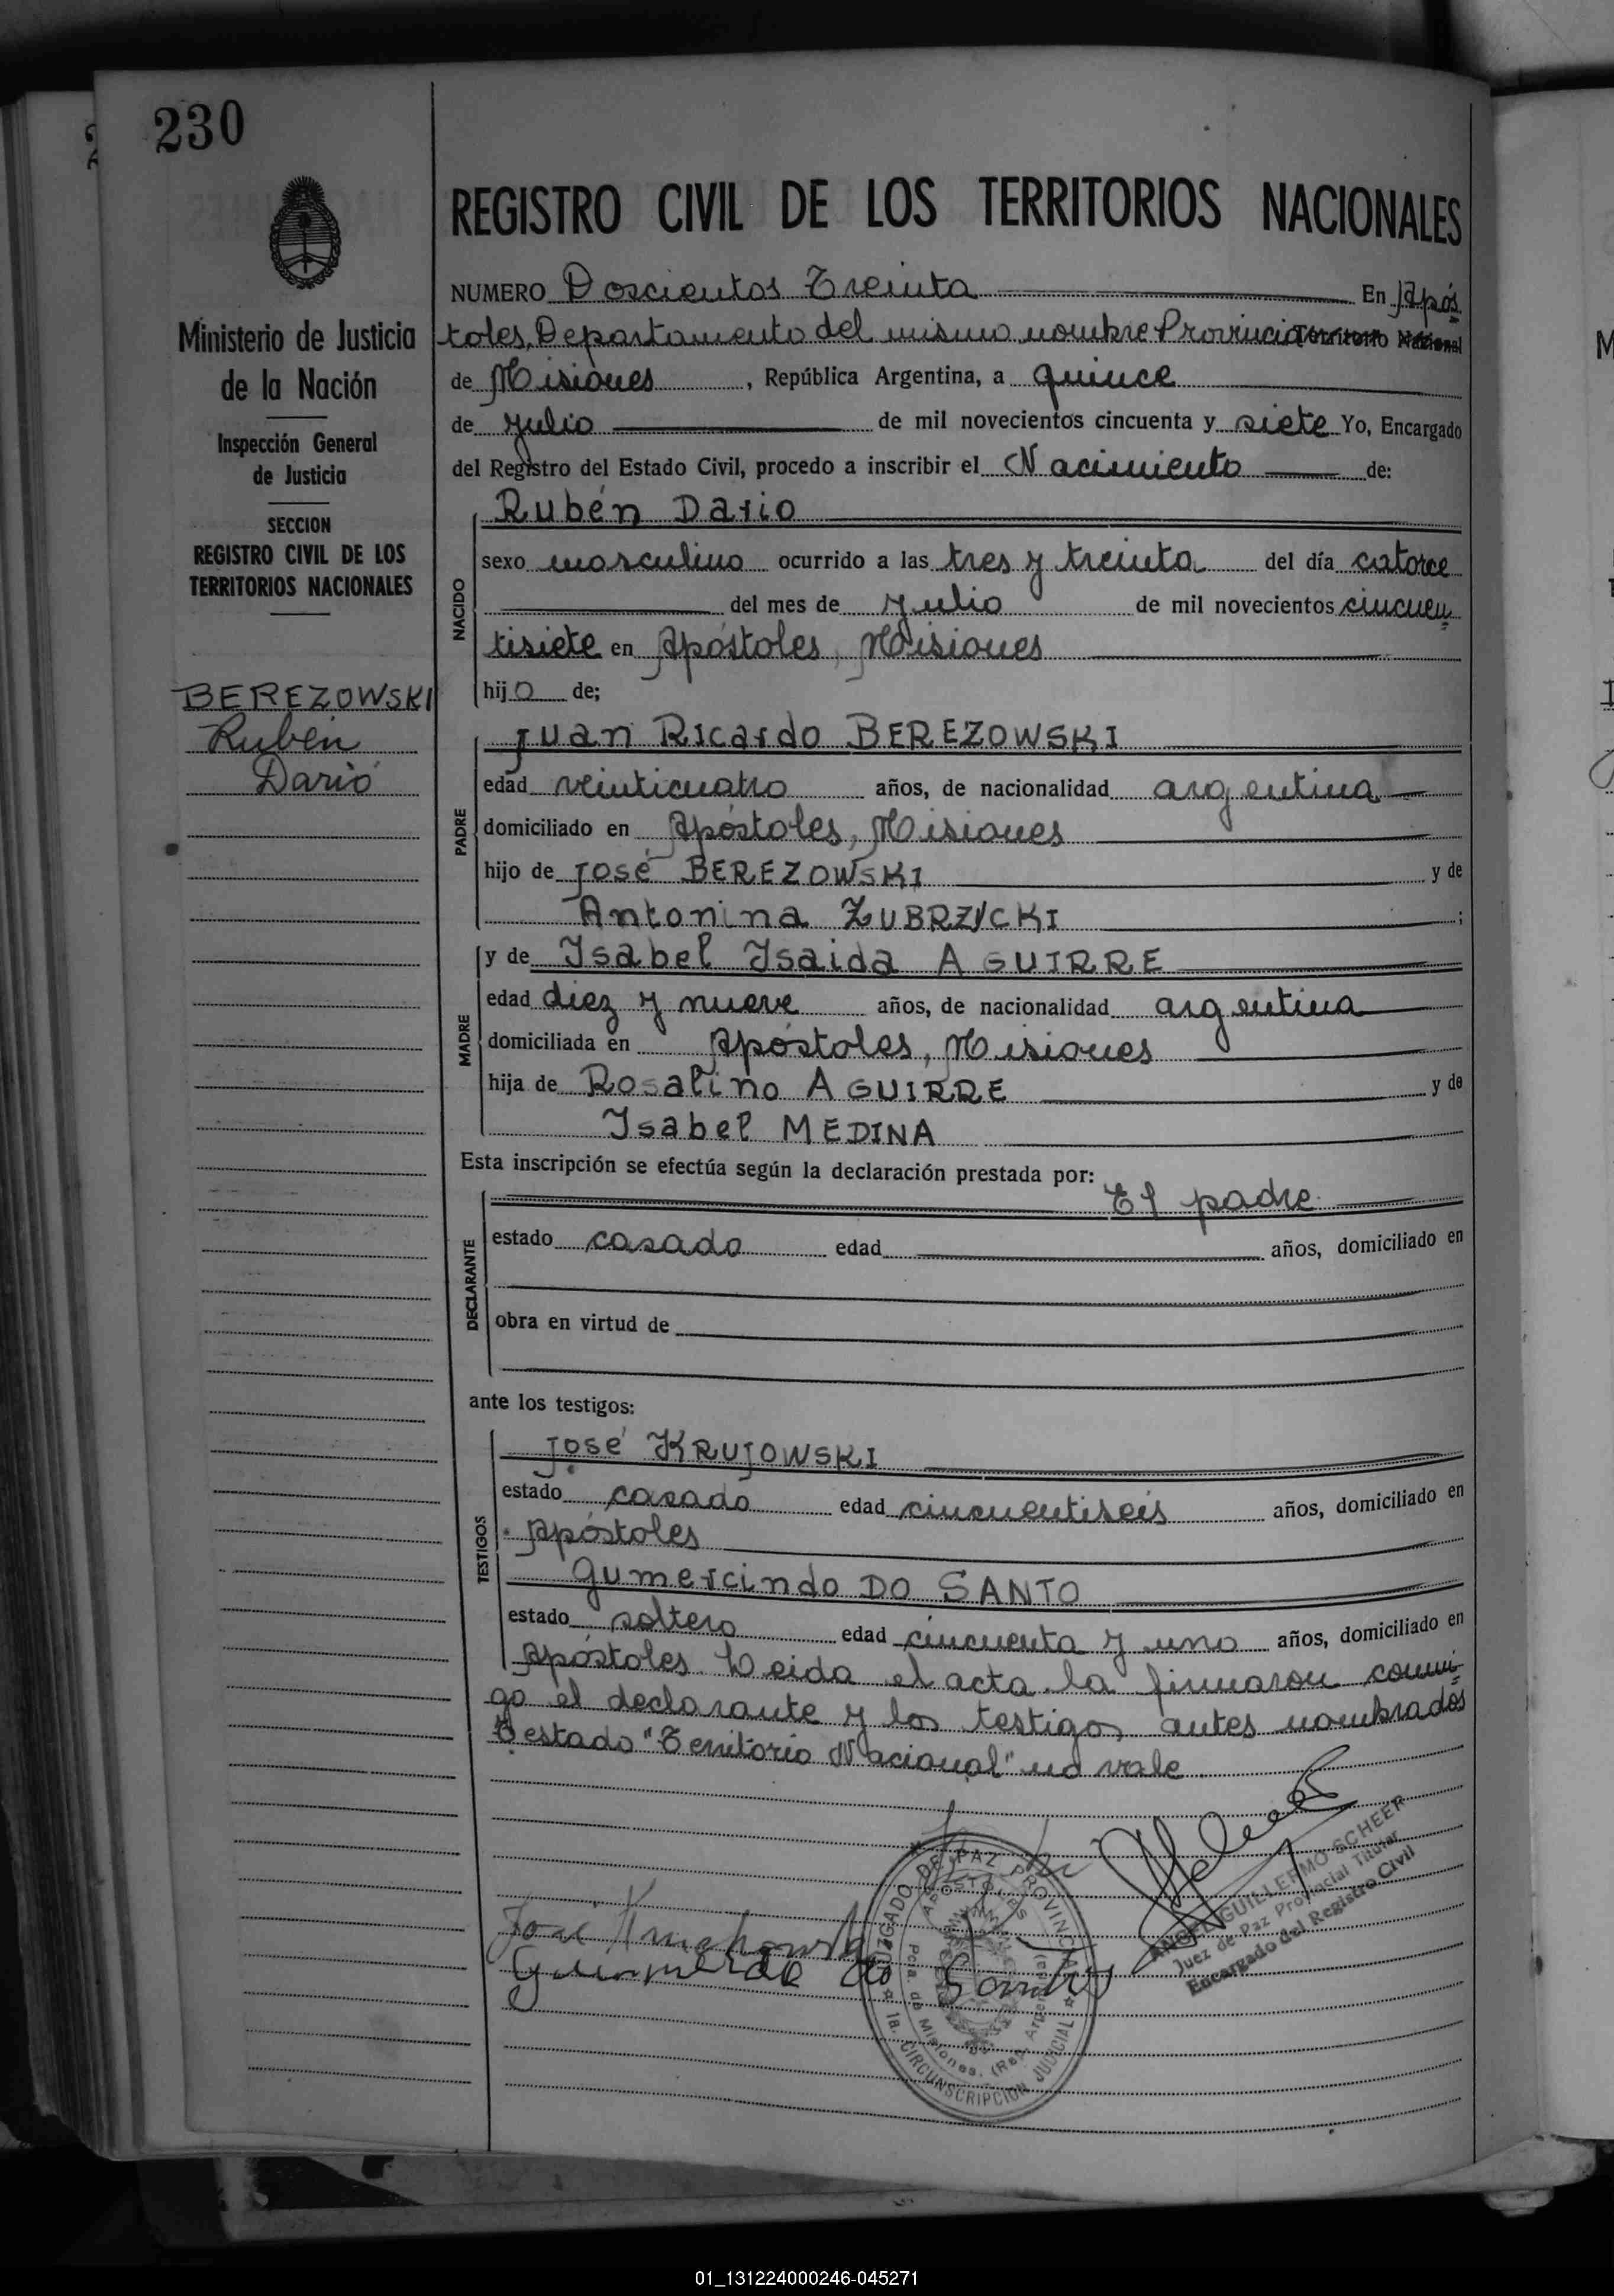 230
REGISTRO CIVIL DE LOS TERRITORIOS NACIONALES
Ministerio de Justicia
de la Nación
Inspección General
de Justicia
SECCION
REGISTRO CIVIL DE LOS
TERRITORIOS NACIONALES
BEREZOWSKI
Rubén
Darió
NUMERO Doscientos Treinta En Após
toles, Departamento del mismo nombre Provincia Territorio Nacional
de Misiones, República Argentina, a quince
de julio de mil novecientos cincuenta y siete Yo, Encargado
del Registro del Estado Civil, procedo a inscribir el Nacimiento de:
NACIDO
Rubén Dario
sexo masculino ocurrido a las tres y treinta del día catorce
del mes de julio de mil novecientos cincuen
tisiete en Apóstoles, Misiones
hijo de;
PADRE
Juan Ricardo BEREZOWSKI
edad veinticuatro años, de nacionalidad argentina
domiciliado en Apóstoles, Misiones
hijo de José BEREZOWSKI y de
Antonina ZUBRZYCKI;
MADRE
y de Isabel Isaida AGUIRRE
edad diez y nueve años, de nacionalidad argentina
domiciliada en Apóstoles, Misiones
hija de Rosalino AGUIRRE y de
Isabel MEDINA
Esta inscripción se efectúa según la declaración prestada por:
DECLARANTE
El padre
estado casado edad años, domiciliado en
obra en virtud de
ante los testigos:
TESTIGOS
José KRUJOWSKI
estado casado edad cincuentiseis años, domiciliado en
Apóstoles
Gumercindo DO SANTO
estado soltero edad cincuenta y uno años, domiciliado en
Apóstoles. Leida el acta la firmaron conmi-
go el declarante y los testigos antes nombrados
Testado "Territorio Nacional" no vale.
José
do Santos
JUZGADO DE PAZ PROVINCIAL
APOSTOLES
Pcia. de Misiones, (Rep. Argentina)
1a. CIRCUNSCRIPCION JUDICIAL
ANGEL GUILLERMO SCHEER
Juez de Paz Provincial Titular
Encargado del Registro Civil
01_131224000246-045271